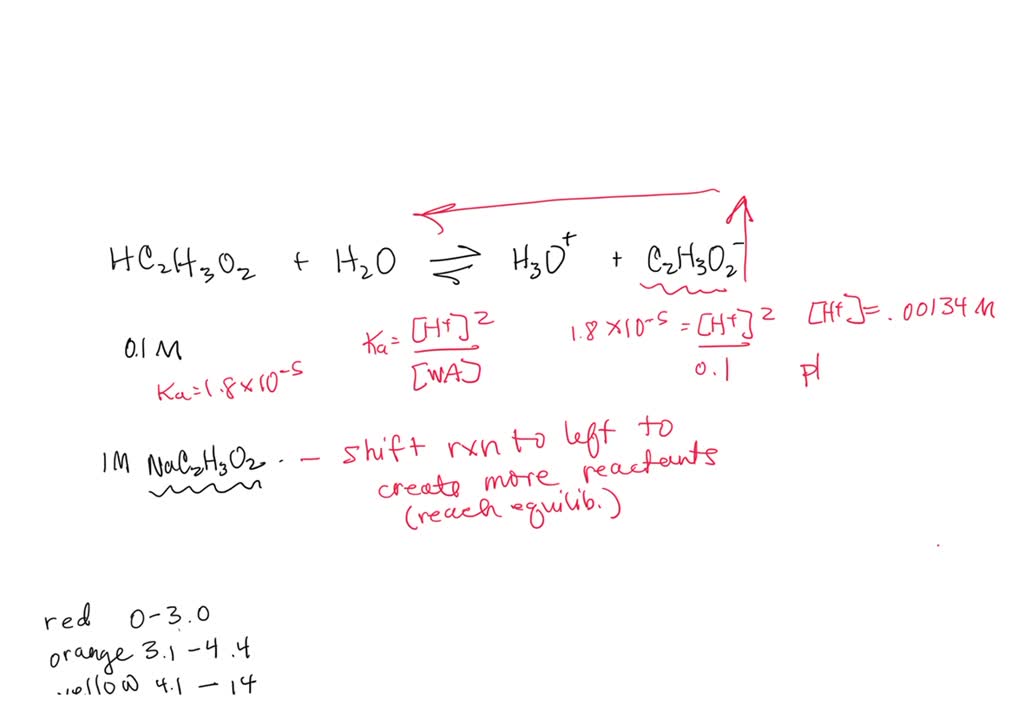 HC₂H₃O₂ + H₂O ⇌ H₃O⁺ + C₂H₃O₂⁻
0.1 M
Ka=1.8×10⁻⁵
Ka= [H⁺]² / [WA]
1.8×10⁻⁵ = [H⁺]² / 0.1
[H⁺]= .00134 M
p
1M NaC₂H₃O₂. – shift rxn to left to
create more reactants
(reach equilib.)
red 0-3.0
orange 3.1-4.4
yellow 4.1 - 14